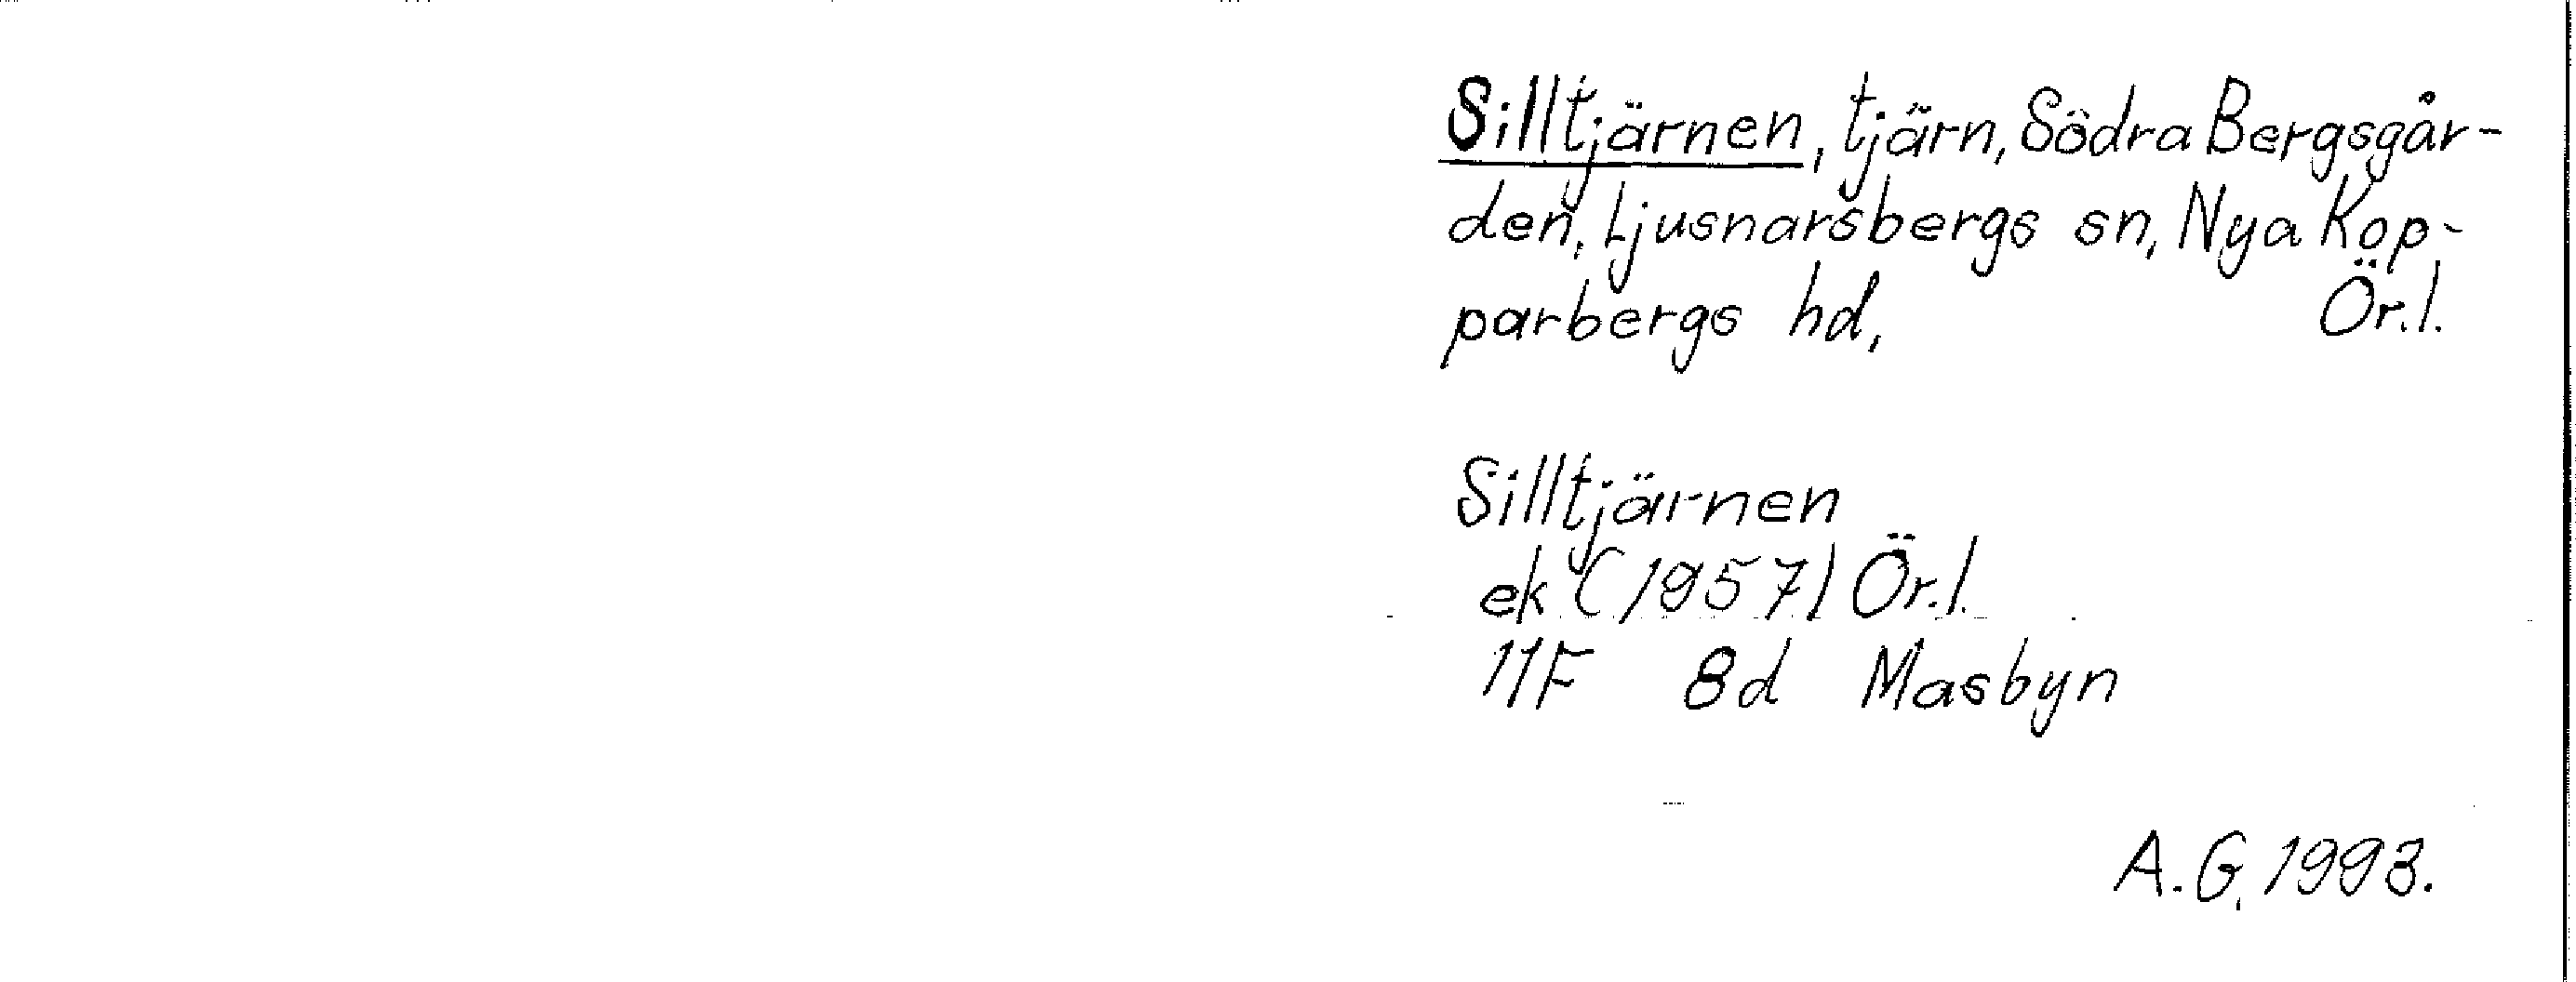 Silltjärnen, tjärn, Södra Bergsgår-
den, Ljusnarsbergs sn, Nya Kop-
parbergs hd, Ör.l.
Silltjärnen
ek (1957) Ör.l.
11F 8d Masbyn
A.G. 1993.